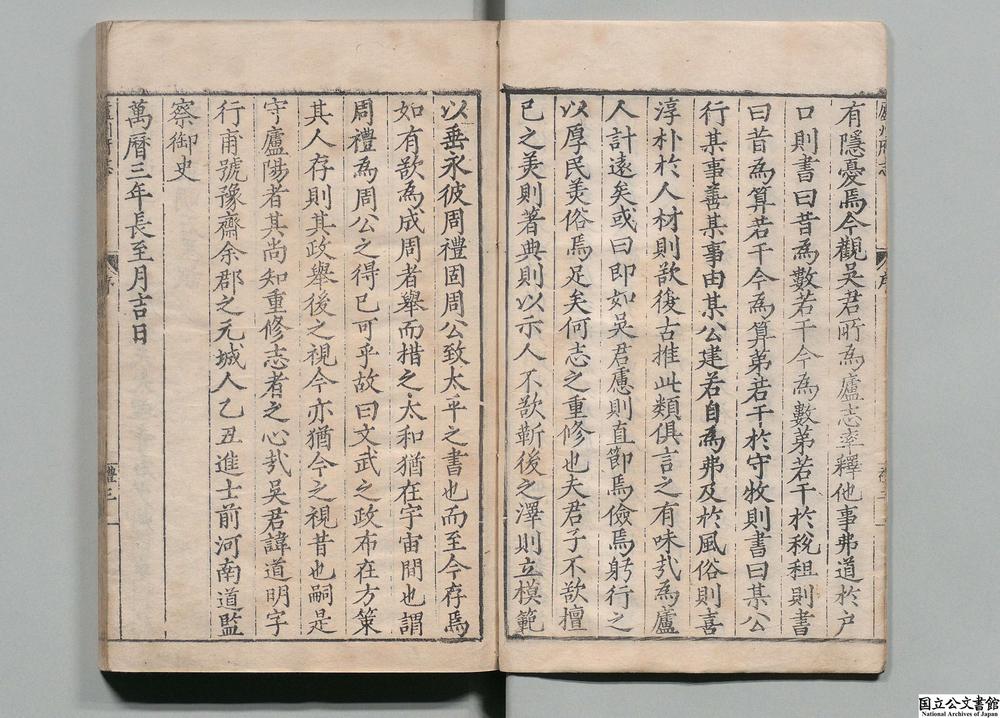 有隱憂焉今觀吳君所為廬志率釋他事弗道於戶
口則書曰昔為數若干今為數弟若干於稅租則書
曰昔為算若干今為算弟若干於守牧則書曰某公
行某事善某事由某公建若自為弗及於風俗則喜
淳朴於人材則欲復古推此類俱言之有味哉為廬
人計遠矣或曰即如吳君慮則直節焉儉焉躬行之
以厚民美俗焉足矣何志之重修也夫君子不欲擅
己之美則著典則以示人不欲靳後之澤則立模範
以垂永彼周禮固周公致太平之書也而至今存焉
如有欲為成周者舉而措之太和猶在宇宙間也謂
周禮為周公之得已可乎故曰文武之政布在方策
其人存則其政舉後之視今亦猶今之視昔也嗣是
守廬陽者其尚知重修志者之心哉吳君諱道明字
行甫號豫齋余郡之元城人乙丑進士前河南道監
察御史
萬曆三年長至月吉日
序
序
国立公文書館
National Archives of Japan